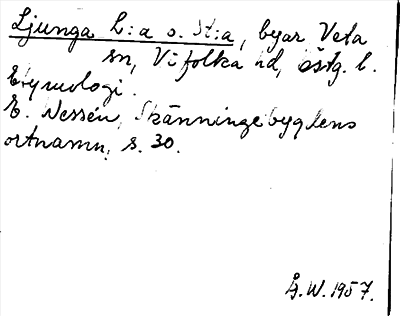 Ljunga L:a o. St:a, byar Veta
sn, Vifolka hd, östg. l.
Etymologi.
E. Wessén, Skänningebygdens
ortnamn, s. 30.
Å.W. 1957.